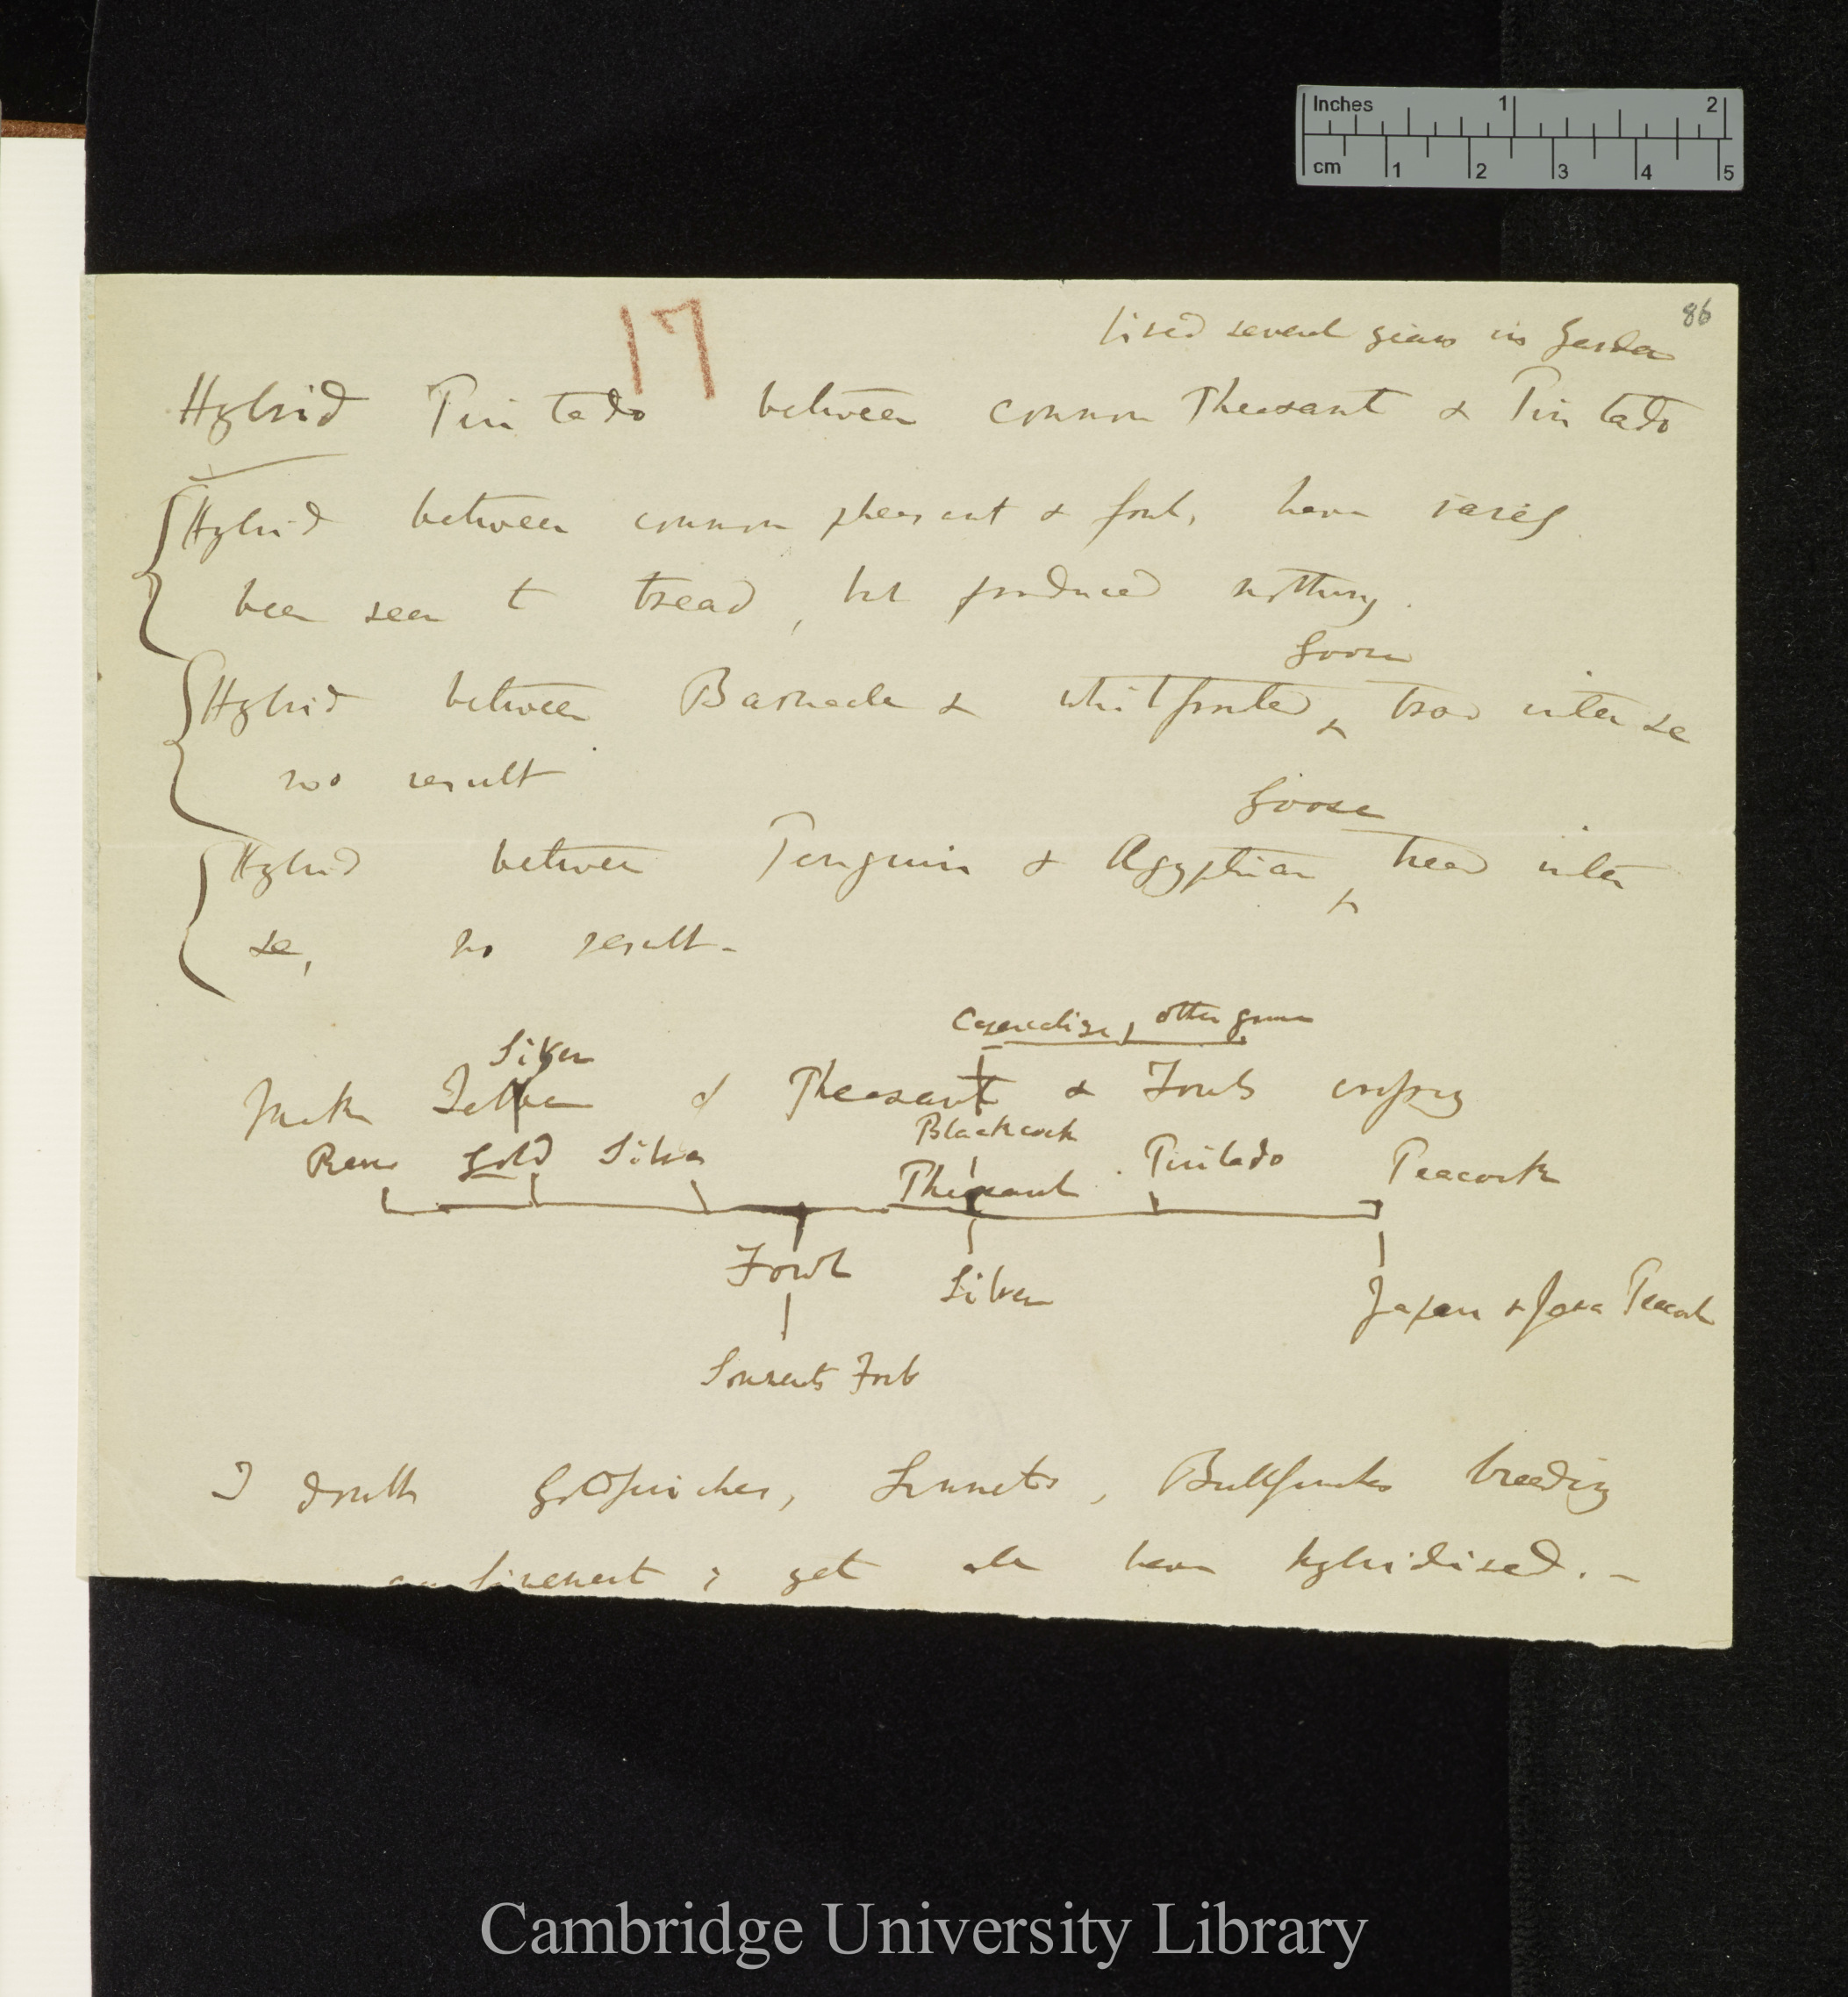 Inches 1 2
cm 1 2 3 4 5
86
17
lived several years in Garden
Hybrid Pintado between common Pheasant & Pintado
Hybrid between common pheasant & fowl, have rarely
been seen to tread, but produced nothing.
Goose
Hybrid between Barnacle & whitfronted ^ trod inter se
no result
Goose
Hybrid between Penguin & Ægyptian ^ tread inter
se, no result –
Capercailzie, other grouse
Silver
Make of Pheasant & Fowls crossing
Blackcock
Reeves Gold Silver Pheasant Pintado Peacock
Fowl Silver Japan & Java Peacock
Sonnerats Fowl
I doubt Goldfinches, Linnets, Bullfinches breeding
confinement; yet all have hybridised. –
Cambridge University Library